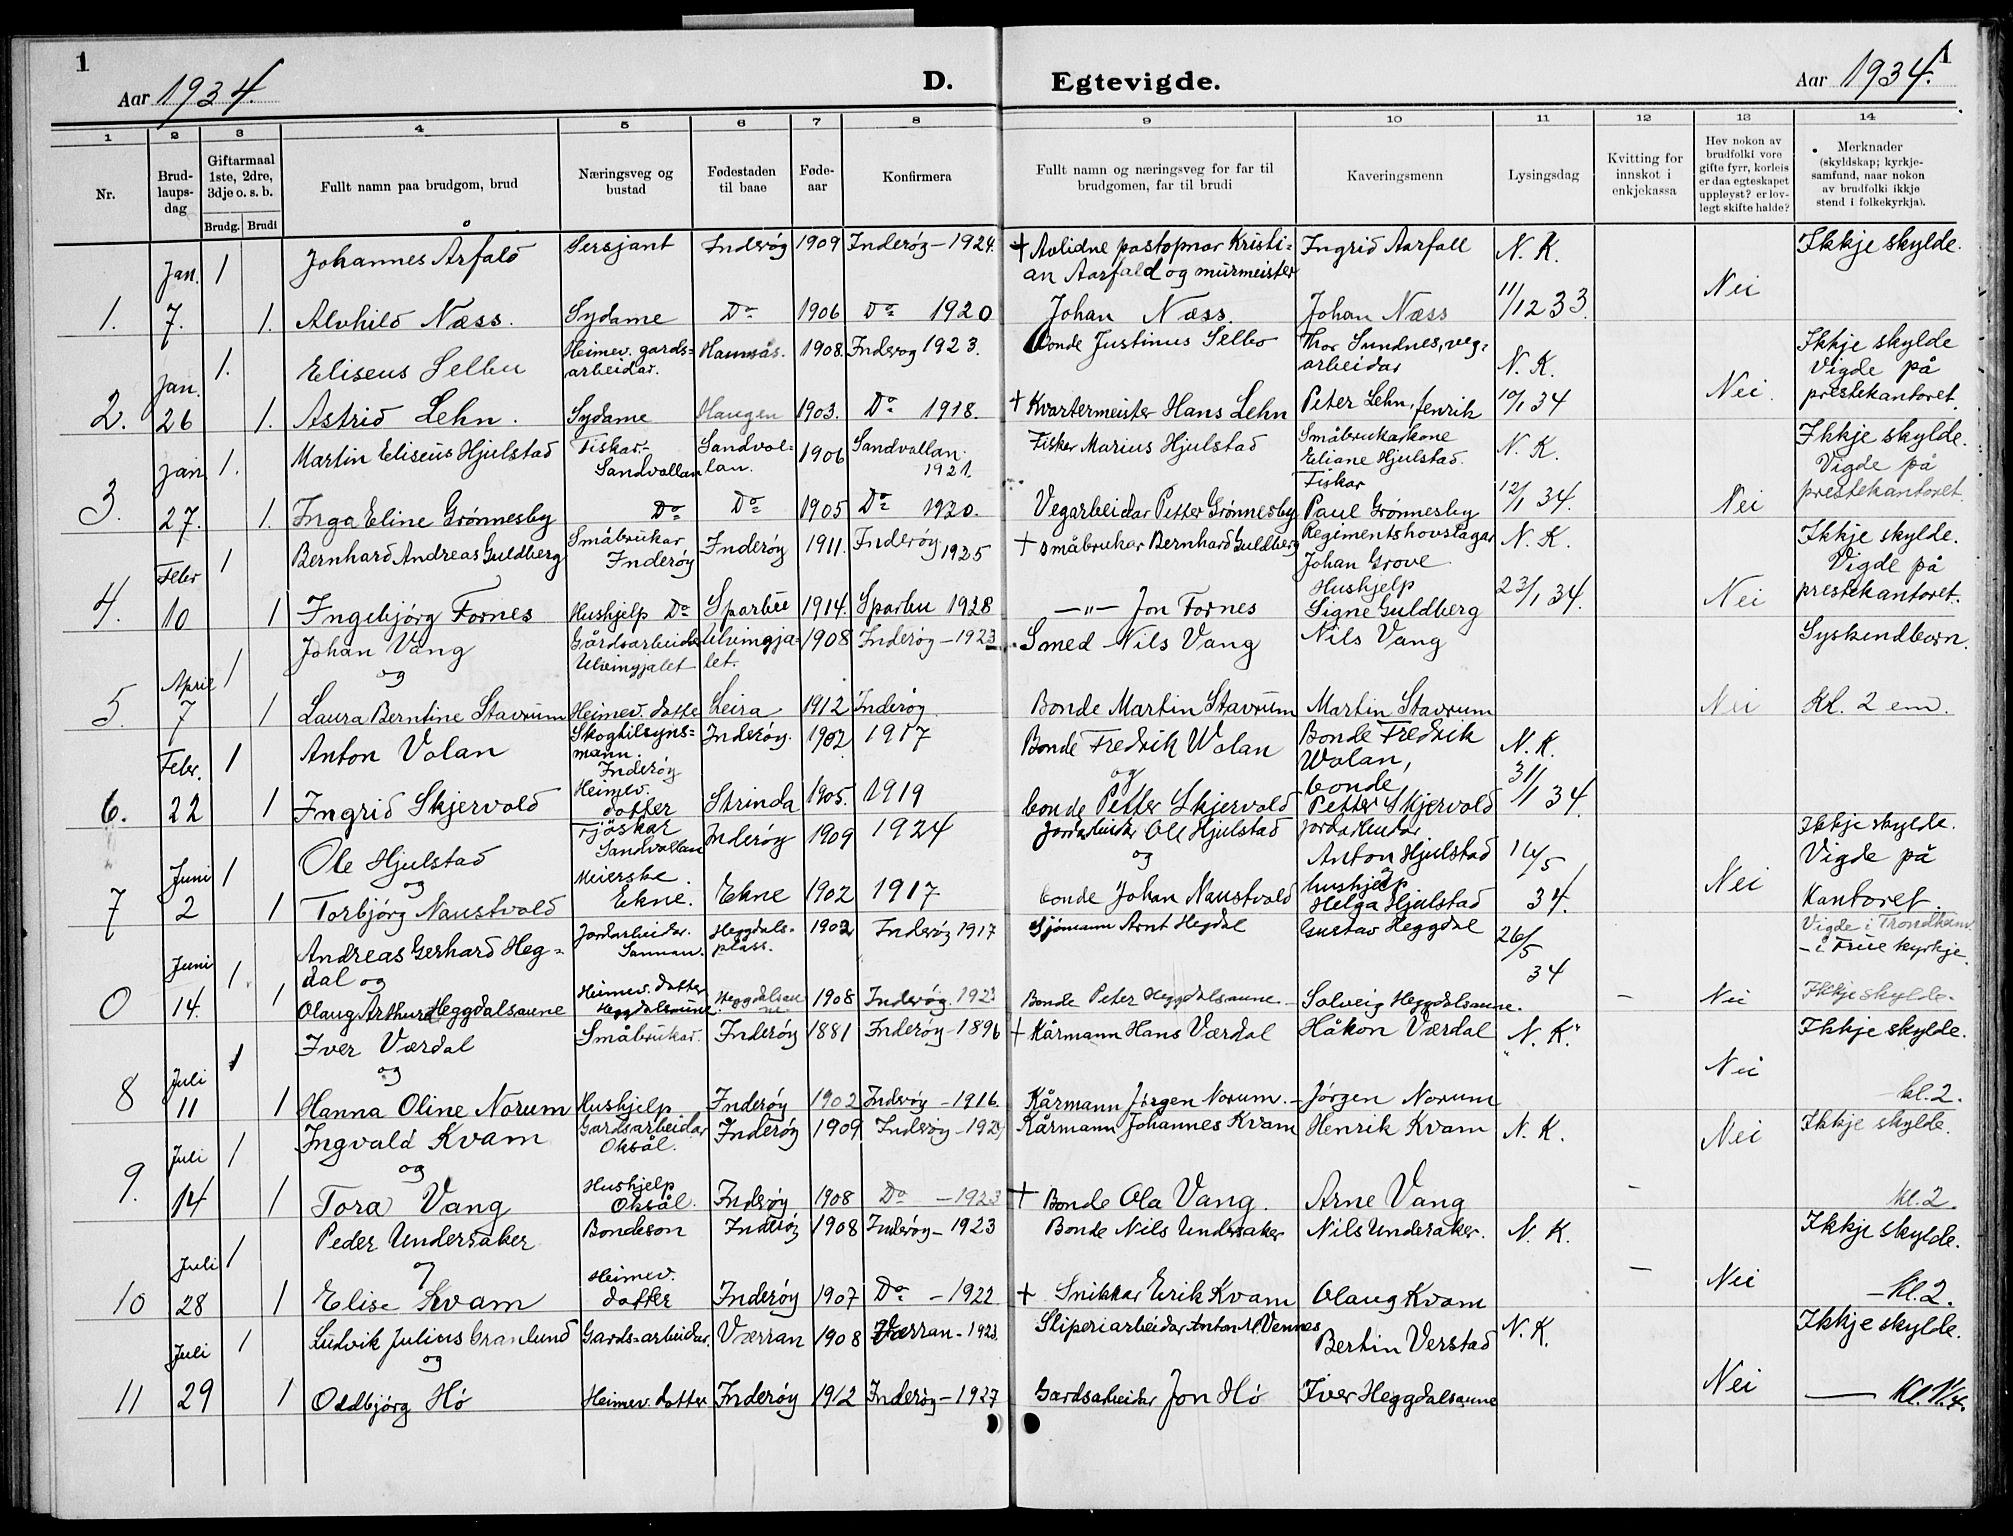 1
Aar 1934.
D. Egtevigde.
Aar 1934.
1
1 2 3 4 5 6 7 8 9 10 11 12 13 14
Nr.
Brud-
laups-
dag
Giftarmaal
1ste, 2dre,
3dje o. s. b.
Brudg. Brudi
Fullt namn paa brudgom, brud
Næringsveg og
bustad
Fødestaden
til baae
Føde-
aar
Konfirmera
Fullt namn og næringsveg for far til
brudgomen, far til brudi
Kaveringsmenn
Lysingsdag
Kvitting for
innskot i
enkjekassa
Hev nokon av
brudfolki vore
gifte fyrr, korleis
er daa egteskapet
uppløyst? er lov-
legt skifte halde?
Merknader
(skyldskap; kyrkje-
samfund, naar nokon
av brudfolki ikkje
stend i folkekyrkja).
Jan. 1 Johannes Årfald Sersjant Inderøy 1909 Inderøy - 1924. + Avlidne postopnar Kristi- Ingrid Aarfall N. K. Ikkje skylde.
an Aarfald og murmeister
1. 7. 1. Alvhild Næss. Sydame Do 1906 Do 1920 Johan Næss. Johan Næss 11/12 33. Nei
Jan. 1. Eliseus Selbu Heimev. gards- 1908. Inderøy 1923. Bonde Justinus Selbo Thor Sundnes, veg- Ikkje skylde
arbeidar. arbeidar N. K. Vigde på
2. 26 1. Astrid Lehn. Sydame Haugen 1903. Do 1918. + Kvartermeister Hans Lehn Peter Lehn, fenrik 10/1 34 Nei. prestekantoret.
jan 1. Martin Eliseus Hjulstad Fiskar. Sandvol- 1906 Sandvollan Fisker Marius Hjulstad Småbrukarkone N. K. Ikkje skylde.
Sandvollan lan. 1921. Eliane Hjulstad. Vigde på
Fiskar
3. 27. 1. Inga Eline Grønnesby Do Do 1905 Do 1920. Vegarbeidar Petter Grønnesby Paul Grønnesby 12/1 34. Nei prestekantoret.
Febr 1 Bernhard Andreas Guldberg Småbrukar Inderøy 1911. Inderøy 1925 + småbrukar Bernhard Guldberg Regimentshovslagar N. K. Ikkje skylde.
Inderøy Johan Grove Vigde på
Hushjelp
4. 10 1 Ingebjørg Fornes Hushjelp Do Sparbu 1914. Sparbu 1928 -"- Jon Fornes Signe Guldberg 23/1 34. Nei prestekantoret.
April 1 Johan Vang Gårdsarbeidar Ulvingja- 1908 Inderøy - 1923 Smed Nils Vang Nils Vang Syskendborn.
og Ulvingjalet let.
5. 7 1 Laura Berntine Stavrum Heimev. dotte Leira 1912 Inderøy. Bonde Martin Stavrum Martin Stavrum Nei Kl. 2 em.
Febr. 1 Anton Volan Skogtilsyns- Inderøy. 1902 1917 Bonde Fredrik Wolan Bonde Fredrik N. K.
mann. og Wolan,
Inderøy
6. 22 1 Ingrid Skjervold Heimev. Strinda 1905. 1919 bonde Petter Skjervold bonde 31/1 34.
dotter Petter Skjervold
Juni 1 Ole Hjulstad Sandvollan Inderøy 1909 1924 Jordarbeidar Ole Hjulstad Jordarbeidar Ikkje skylde.
og og Anton Hjulstad Vigde på
7 2 1 Torbjørg Naustvold Meierske. Ekne 1902 1917 bonde Johan Naustvold hushjelp 34. Nei Kantoret.
Ekne. Helga Hjulstad
Juni 1. Andreas Gerhard Heg- Jordarbeidar. Heggdals- 1902 Inderøy 1917 Sjömann Arnt Hegdal Gustav Heggdal 26/5 34 Vigde i Trondheim
dal og Sannan. plass. - i Frue kyrkje.
0 14. 1 Olaug Arthura Heggdalsaune Heimev. dotter 1908 Inderøy. 1923 Bonde Peter Heggdalsaune - Solveig Heggdalsaune. - Nei Ikkje skylde.
Heggdalsaune.
1 Iver Værdal Småbrukar. Inderøy 1881 Inderøy - 1896 + Kårmann Hans Værdal Håkon Værdal N. K. Ikkje skylde.
Juli og Nei
8 11 1 Hanna Oline Norum Hushjelp Inderøy 1902 Inderøy - 1916. Kårmann Jørgen Norum. - Jørgen Norum kl. 2.
Juli 1 Ingvald Kvam Gardsarbeidar Inderøy 1909 Inderøy - 1924 Kårmann Johannes Kvam Henrik Kvam N. K. Nei Ikkje skylde.
og Oksål.
9. 14 1 Tora Vang Hushjelp Inderøy 1908 Do - 1923 + Bonde Ola Vang. Arne Vang - kl. 2.
Oksål.
Juli 1 Peder Undersaker Bondeson Inderøy 1908 Inderøy - 1923 Bonde Nils Undersaker Nils Undersaker. N. K. Ikkje skylde.
og
10 28 1 Elise Kvam Heimev. dotter Inderøy 1907 Do - 1922 + Snikkar Erik Kvam Olaug Kvam - Nei - kl. 2.
Juli 1 Ludvik Julius Granlund Gards-arbeidar. Værran 1908 Værran - 1923. Sliperiarbeidar Anton M. Vennes Bertin Verstad N. K. Ikkje skylde.
og
11 29 1 Oddbjørg Hó Heimev. dotter Inderøy 1912 Inderøy - 1927 Gardsarbeidar Jon Hó Iver Heggdalsaune Nei